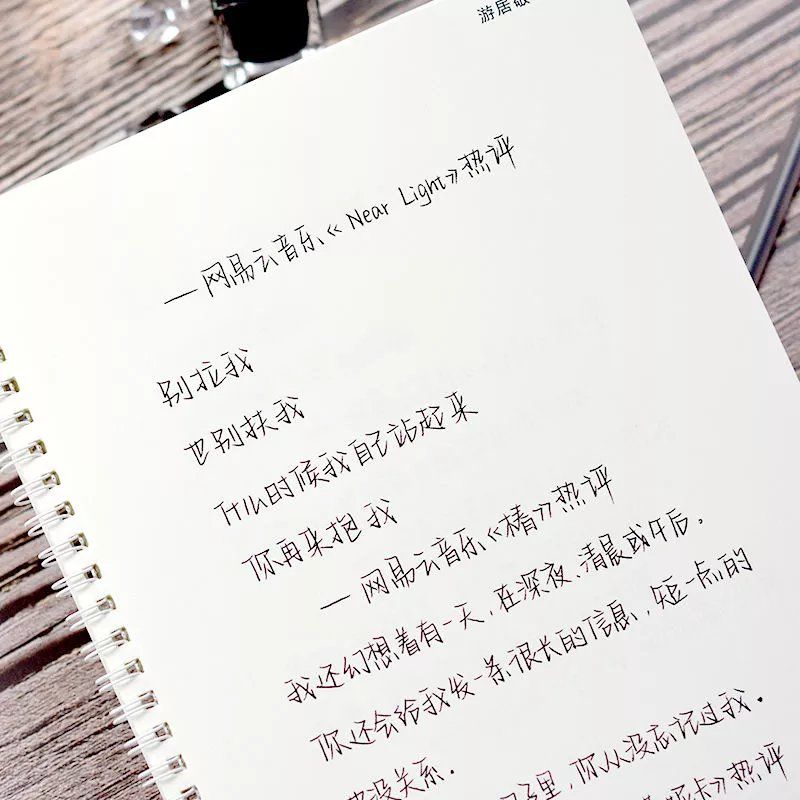 游居敬
—网易云音乐《Near Light》热评
别拉我
也别扶我
时候我自己站起来
你再来抱我
—网易云音乐《椿》热评
我还幻想着有一天,在深夜、清晨或午后,
你还会给我发一条很长的信息,短一点的
也没关系。
里,你从没忘记过我。
卡》热评